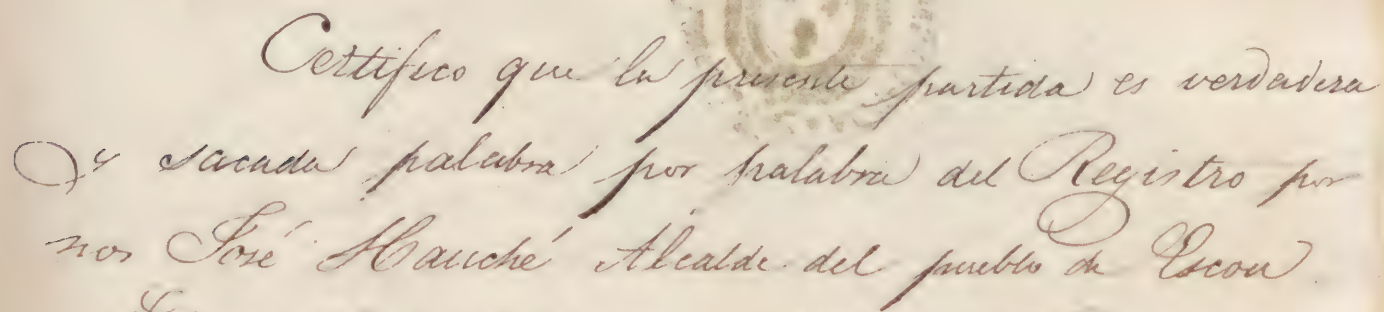 Certifico que la presente partida es verdadera
y sacada palabra por palabra del Registro por
nos José Hauché Alcalde del pueblo de Escou